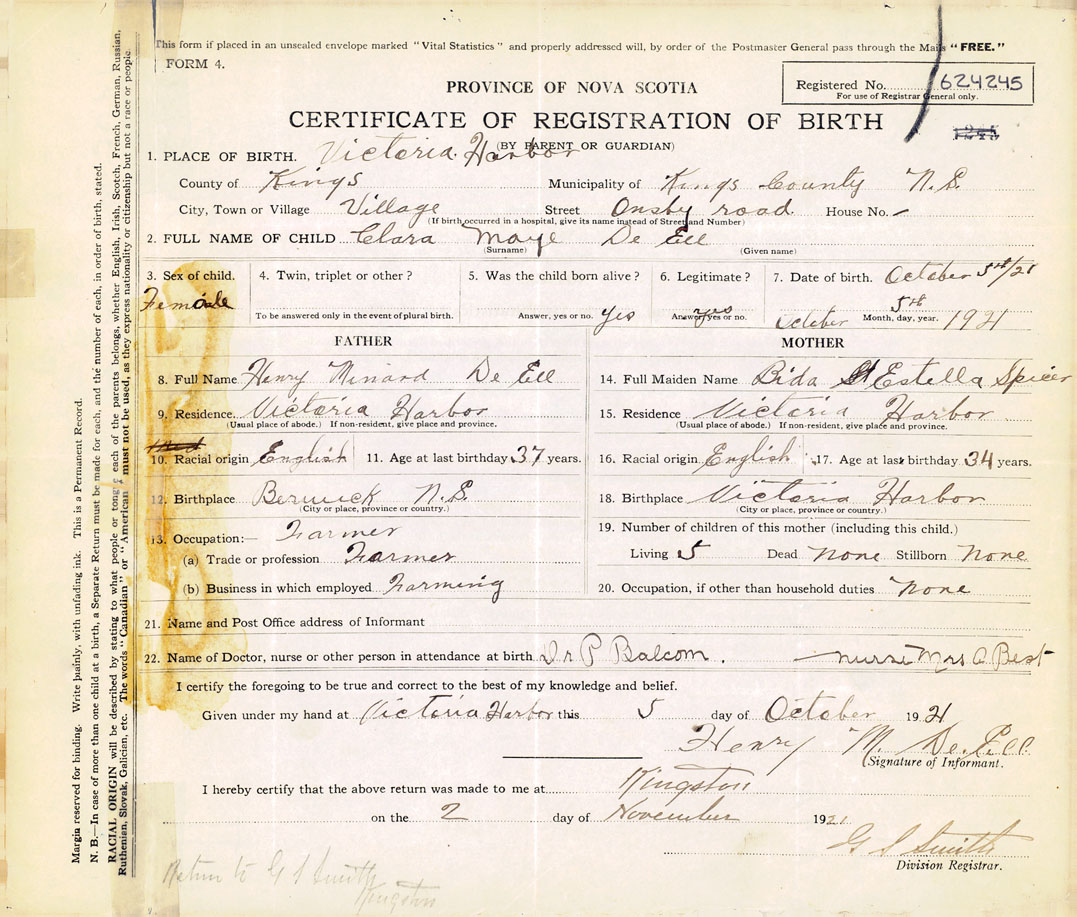 This form if placed in an unsealed envelope marked "Vital Statistics" and properly addressed will, by order of the Postmaster General pass through the Mails "FREE."
FORM 4.
Registered No. 624245
For use of Registrar General only.
PROVINCE OF NOVA SCOTIA
CERTIFICATE OF REGISTRATION OF BIRTH
1245
(BY PARENT OR GUARDIAN)
1. PLACE OF BIRTH. Victoria Harbor
County of Kings Municipality of Kings County N.S.
City, Town or Village Village Street Onsby road House No. -
(If birth occurred in a hospital, give its name instead of Street and Number)
2. FULL NAME OF CHILD Clara Maye De Ell
(Surname) (Given name)
3. Sex of child. 4. Twin, triplet or other? 5. Was the child born alive? 6. Legitimate? 7. Date of birth. October 5th/21
Female To be answered only in the event of plural birth. Answer, yes or no. Yes Answer yes or no. yes October 5th Month, day, year. 1921
FATHER MOTHER
8. Full Name Henry Minard De Ell 14. Full Maiden Name Bida Estella Spicer
9. Residence. Victoria Harbor 15. Residence Victoria Harbor
(Usual place of abode.) If non-resident, give place and province. (Usual place of abode.) If non-resident, give place and province.
10. Racial origin English 11. Age at last birthday 37 years. 16. Racial origin English 17. Age at last birthday 34 years.
12. Birthplace Berwick N.S. 18. Birthplace Victoria Harbor
(City or place, province or country.) (City or place, province or country.)
13. Occupation:— Farmer 19. Number of children of this mother (including this child.)
(a) Trade or profession Farmer Living 5 Dead None Stillborn None
(b) Business in which employed Farming 20. Occupation, if other than household duties None
21. Name and Post Office address of Informant
22. Name of Doctor, nurse or other person in attendance at birth Dr P Balcom. nurse Mrs A Best
I certify the foregoing to be true and correct to the best of my knowledge and belief.
Given under my hand at Victoria Harbor this 5 day of October 1921
Henry M. De Ell
Signature of Informant.
I hereby certify that the above return was made to me at Kingston
on the 2 day of November 1921
G S Smith
Division Registrar.
Return to G S Smith
Kingston
Margin reserved for binding. Write plainly, with unfading ink. This is a Permanent Record.
N. B.—In case of more than one child at a birth, a Separate Return must be made for each, and the number of each, in order of birth, stated.
RACIAL ORIGIN will be described by stating to what people or tongue each of the parents belongs, whether English, Irish, Scotch, French, German, Russian,
Ruthenian, Slovak, Galician, etc. The words "Canadian" or "American" must not be used, as they express nationality or citizenship but not a race or people.